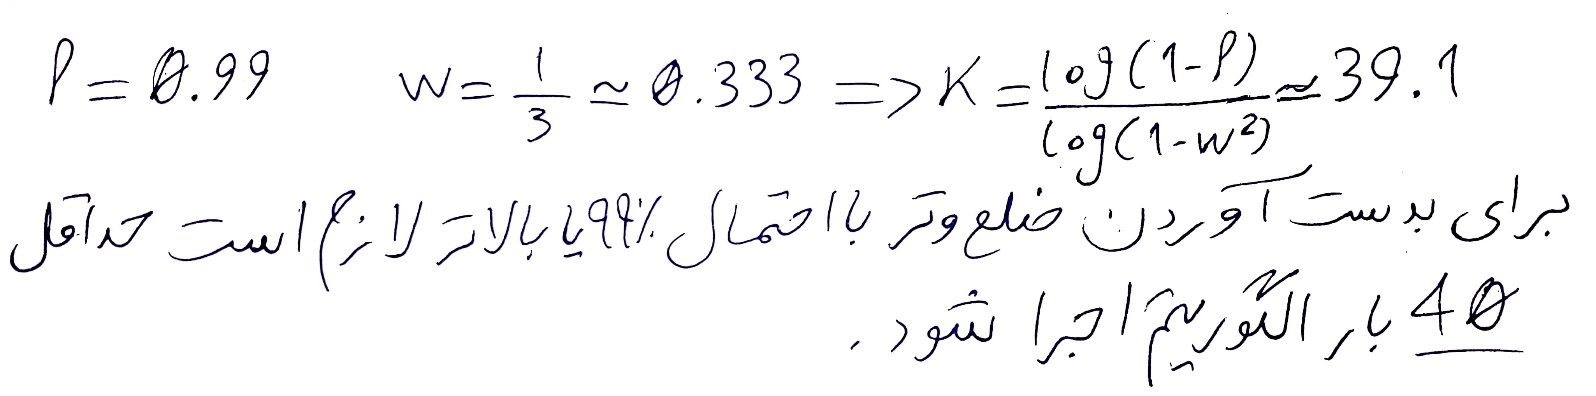 P = 0.99 w = 1/3 ≃ 0.333 => K = log(1-P)/log(1-w²) ≃ 39.1
برای بدست آوردن ضلع وتر با احتمال ۹۹٪ یا بالاتر لازم است حداقل
40 بار الگوریتم اجرا شود.